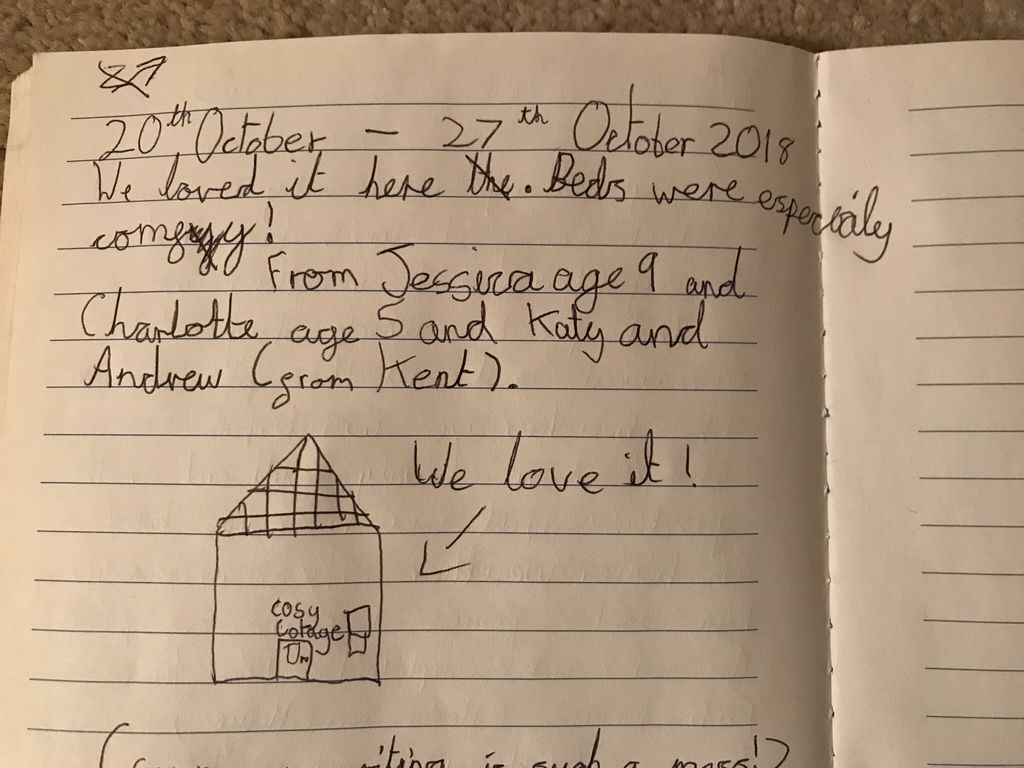 20th October - 27th October 2018
We loved it here the. Beds were especially
comfyy!
From Jessica age 9 and
Charlotte age 5 and Katy and
Andrew (from Kent).
We love it!
cosy
Cotage
writing is such a mess!)